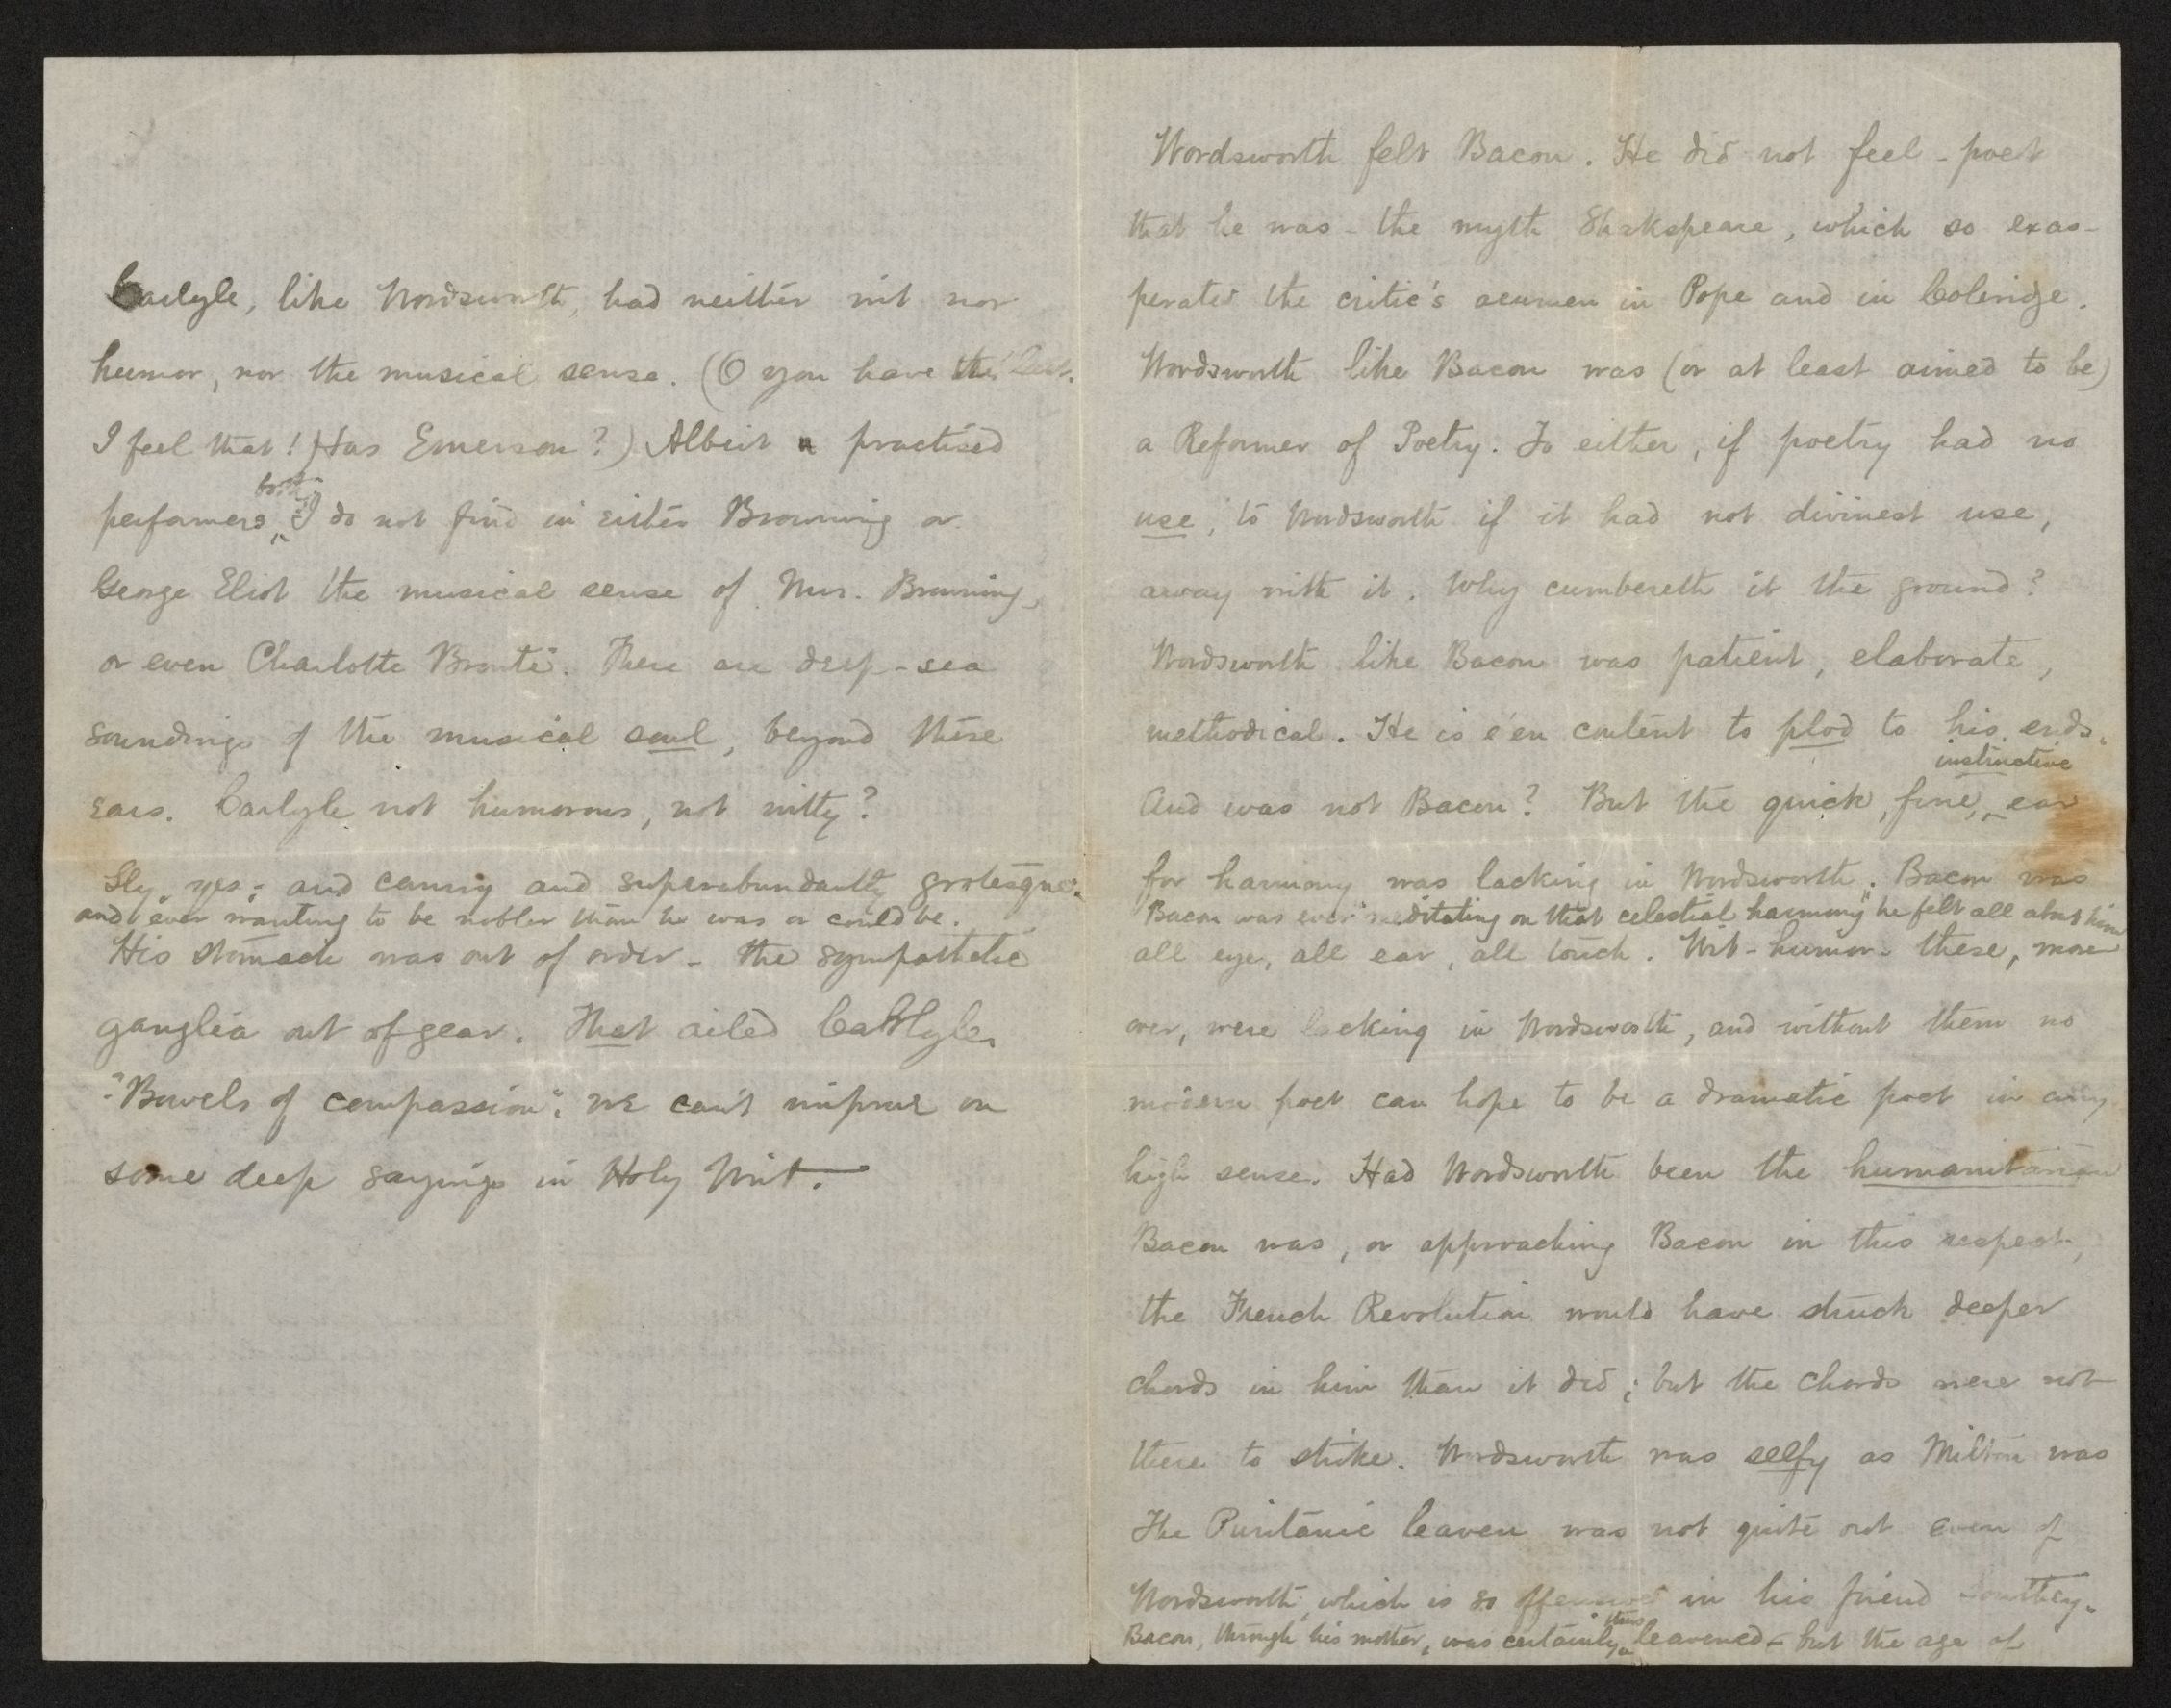 Carlyle, like Wordsworth, had neither wit nor
humor, nor the musical sense. (O you have the last.
I feel that! Has Emerson?) Albeit practised
both
performers, I do not find in either Browning or
George Eliot the musical sense of Mrs. Browning,
or even Charlotte Brontë. There are deep-sea
soundings of the musical soul, beyond these
ears. Carlyle not humorous, not witty?
Sly, yes; and canny and superabundantly grotesque.
and ever wanting to be nobler than he was or could be.
His stomach was out of order - the sympathetic
ganglia out of gear. That ailed Carlyle.
"Bowels of compassion": we can't improve on
some deep sayings in Holy Writ.
Wordsworth felt Bacon. He did not feel - poet
that he was - the myth Shakspeare, which so exas-
perates the critic's acumen in Pope and in Coleridge.
Wordsworth like Bacon was (or at least aimed to be)
a Reformer of Poetry. To either, if poetry had no
use, to Wordsworth if it had not divinest use,
away with it. Why cumbereth it the ground?
Wordsworth like Bacon was patient, elaborate,
methodical. He is e'en content to plod to his ends.
instinctive
And was not Bacon? But the quick, fine, ear
for harmony was lacking in Wordsworth. Bacon was
Bacon was ever "meditating on that celestial harmony" he felt all about him
all eye, all ear, all touch. Wit - humor - these, more
over, were lacking in Wordsworth, and without them no
modern poet can hope to be a dramatic poet in any
high sense. Had Wordsworth been the humanitarian
Bacon was, or approaching Bacon in this respect,
the French Revolution would have struck deeper
chords in him than it did; but the chords were not
there to strike. Wordsworth was selfy as Milton was
The Puritanic leaven was not quite out even of
Wordsworth, which is so offensive in his friend Southey.
thus
Bacon, through his mother, was certainly leavened - but the age of